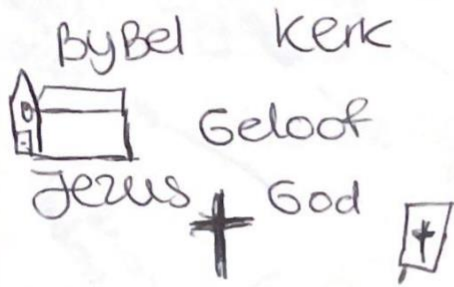 ByBel Kerk
Geloof
Jezus God